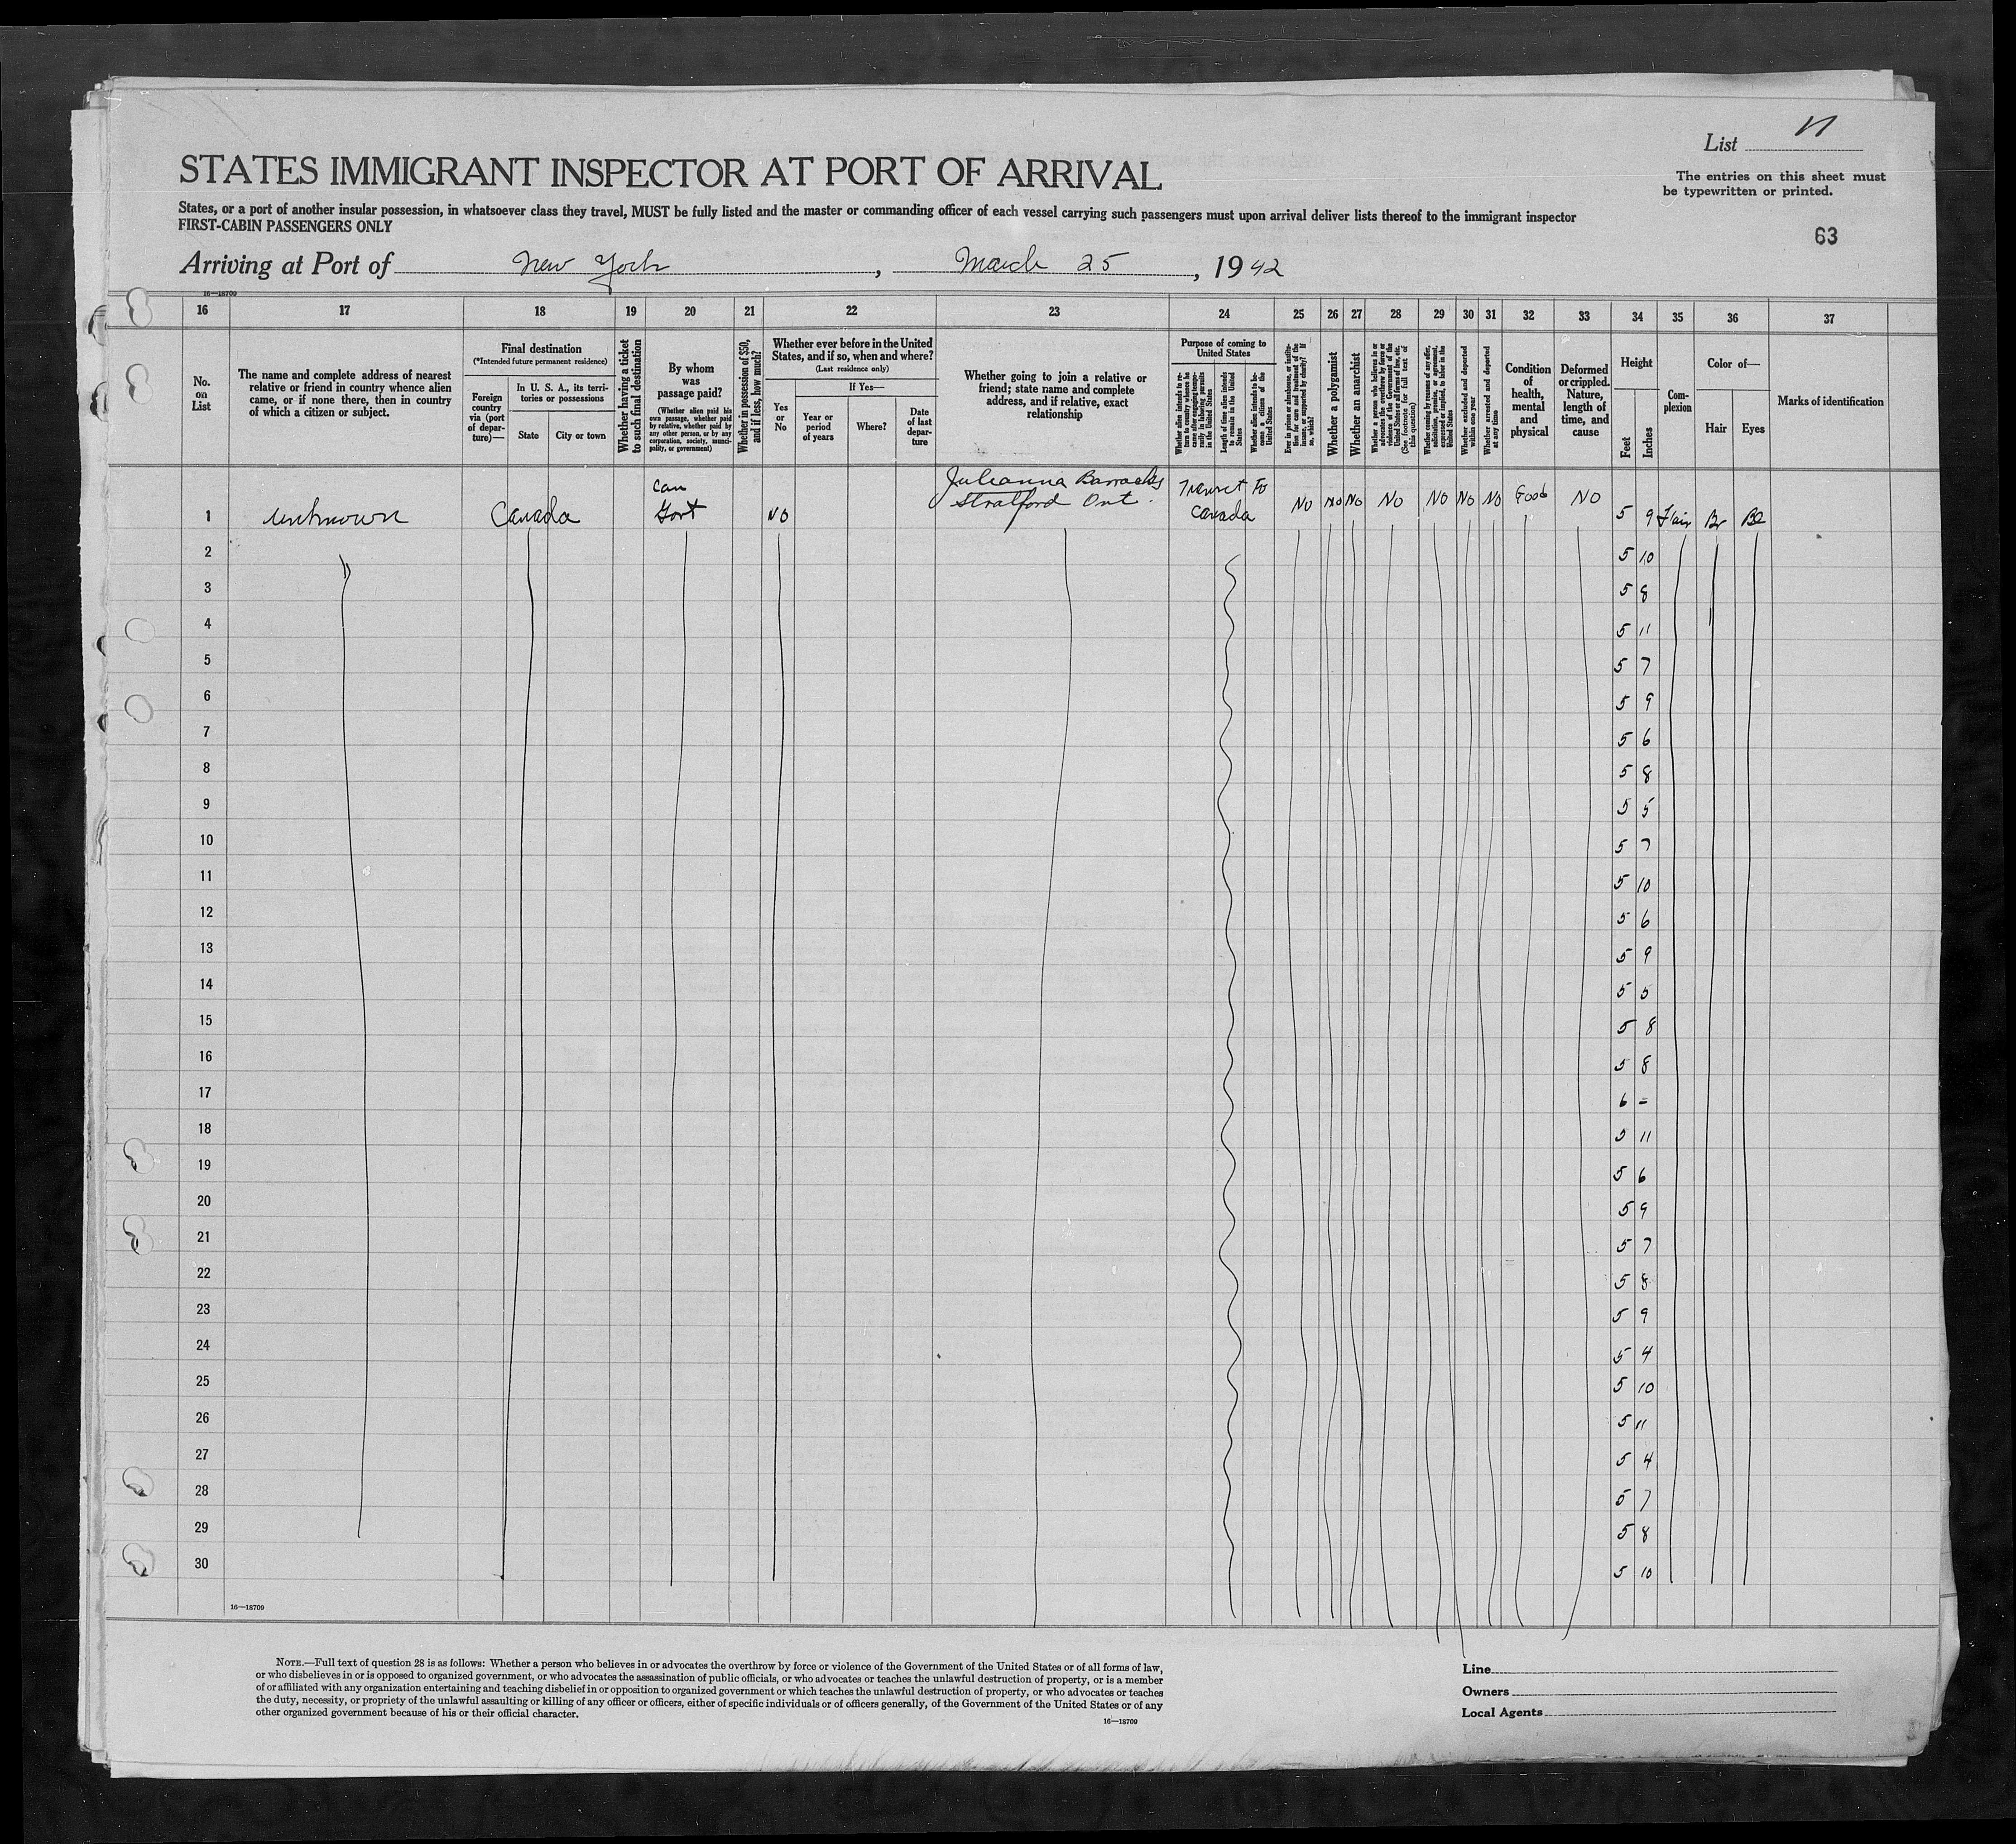 List 11
STATES IMMIGRANT INSPECTOR AT PORT OF ARRIVAL
The entries on this sheet must
be typewritten or printed.
States, or a port of another insular possession, in whatsoever class they travel, MUST be fully listed and the master or commanding officer of each vessel carrying such passengers must upon arrival deliver lists thereof to the immigrant inspector
FIRST-CABIN PASSENGERS ONLY
63
Arriving at Port of New York, March 25, 1942
16—18709
16 17 18 19 20 21 22 23 24 25 26 27 28 29 30 31 32 33 34 35 36 37
No.
on
List
The name and complete address of nearest
relative or friend in country whence alien
came, or if none there, then in country
of which a citizen or subject.
Final destination
(*Intended future permanent residence)
Foreign
country
via (port
of depar-
ture)—
In U. S. A., its terri-
tories or possessions
State
City or town
Whether having a ticket
to such final destination
By whom
was
passage paid?
(Whether alien paid his
own passage, whether paid
by relative, whether paid by
any other person, or by any
corporation, society, munici-
pality, or government)
Whether in possession of $50,
and if less, how much?
Whether ever before in the United
States, and if so, when and where?
(Last residence only)
Yes
or
No
If Yes—
Year or
period
of years
Where?
Date
of last
depar-
ture
Whether going to join a relative or
friend; state name and complete
address, and if relative, exact
relationship
Purpose of coming to
United States
Whether alien intends to re-
turn to country whence he
came after engaging tempo-
rarily in laboring pursuits
in the United States
Length of time alien intends
to remain in the United
States
Whether alien intends to be-
come a citizen of the
United States
Ever in prison or almshouse, or institu-
tion for care and treatment of the
insane, or supported by charity? If
so, which?
Whether a polygamist
Whether an anarchist
Whether a person who believes in or
advocates the overthrow by force or
violence of the Government of the
United States or all forms of law, etc.
(See footnote for full text of
this question)
Whether coming by reasons of any offer,
solicitation, promise, or agreement,
expressed or implied, to labor in the
United States
Whether excluded and deported
within one year
Whether arrested and deported
at any time
Condition
of
health,
mental
and
physical
Deformed
or crippled.
Nature,
length of
time, and
cause
Height
Feet
Inches
Com-
plexion
Color of—
Hair
Eyes
Marks of identification
1 unknown Canada Can Govt NO Julianna Barracks Stratford Ont. Transit To Canada No No No No No No No Good NO 5 9 Fair Br Bl
2 5 10
3 5 8
4 5 11
5 5 7
6 5 9
7 5 6
8 5 8
9 5 5
10 5 7
11 5 10
12 5 6
13 5 9
14 5 5
15 5 8
16 5 8
17 6 -
18 5 11
19 5 6
20 5 9
21 5 7
22 5 8
23 5 9
24 5 4
25 5 10
26 5 11
27 5 4
28 5 7
29 5 8
30 5 10
16—18709
NOTE.—Full text of question 28 is as follows: Whether a person who believes in or advocates the overthrow by force or violence of the Government of the United States or of all forms of law,
or who disbelieves in or is opposed to organized government, or who advocates the assassination of public officials, or who advocates or teaches the unlawful destruction of property, or is a member
of or affiliated with any organization entertaining and teaching disbelief in or opposition to organized government or which teaches the unlawful destruction of property, or who advocates or teaches
the duty, necessity, or propriety of the unlawful assaulting or killing of any officer or officers, either of specific individuals or of officers generally, of the Government of the United States or of any
other organized government because of his or their official character.
16—18709
Line
Owners
Local Agents